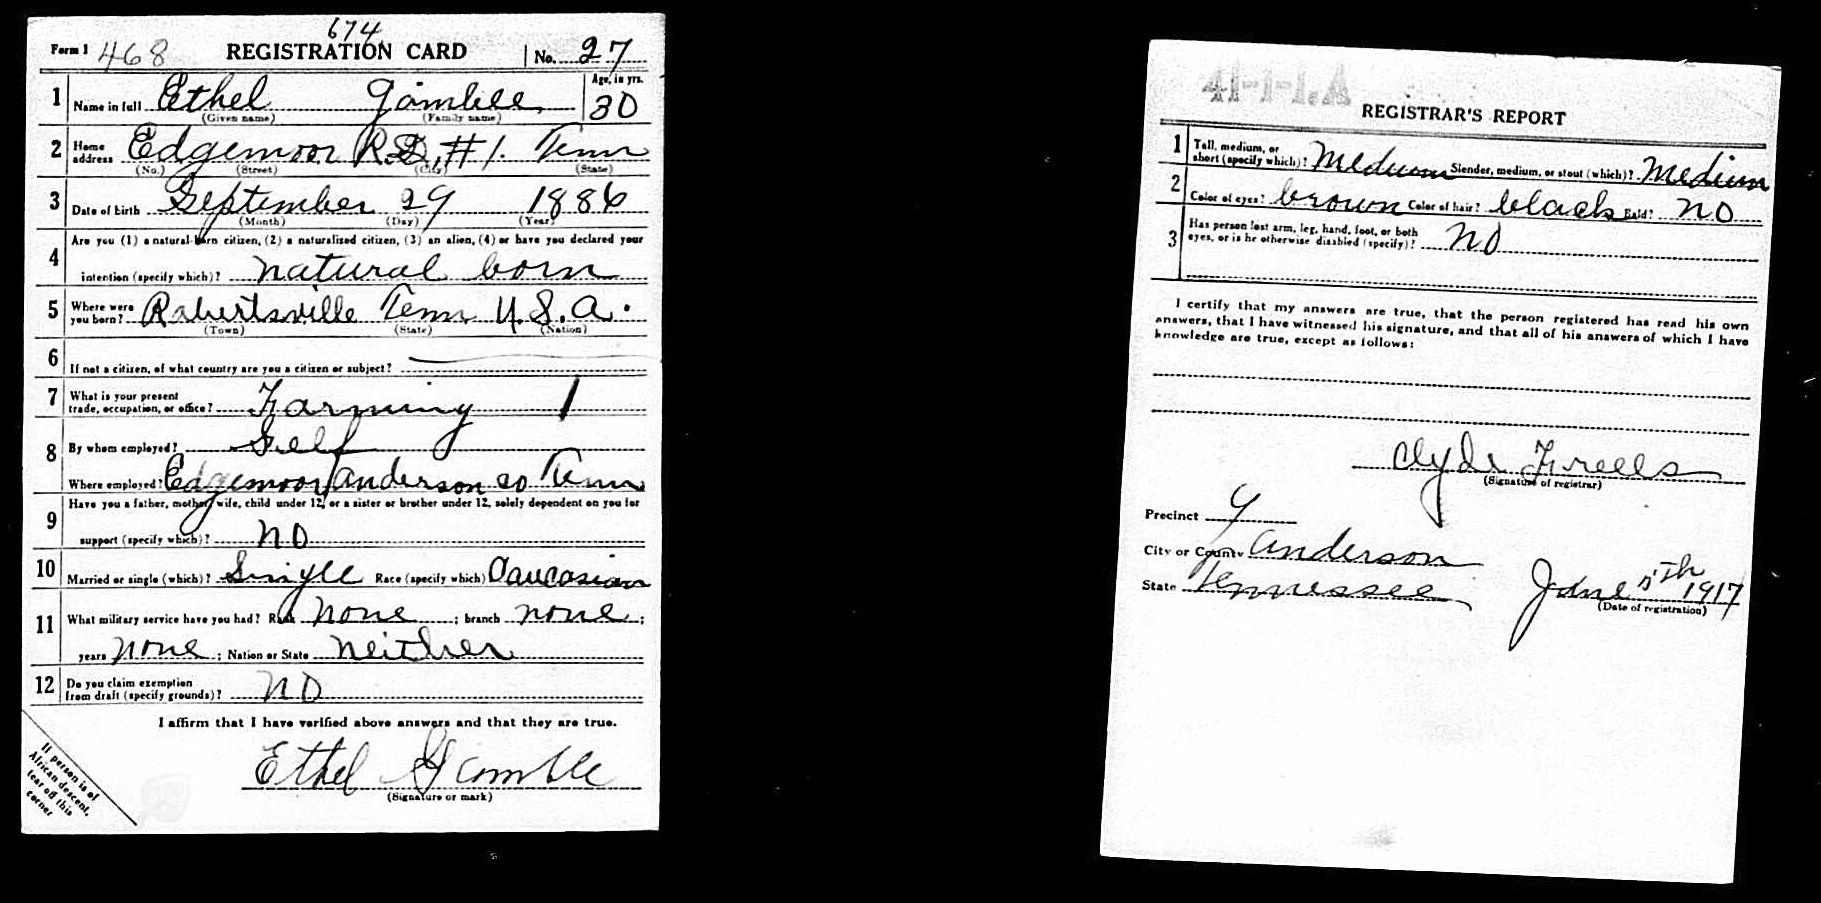 674
Form 1 468 REGISTRATION CARD No. 27
1 Name in full Ethel Gamble Age, in yrs. 30
(Given name) (Family name)
2 Home address Edgemoor R.D, #1. Tenn
(No.) (Street) (City) (State)
3 Date of birth September 29 1886
(Month) (Day) (Year)
Are you (1) a natural-born citizen, (2) a naturalized citizen, (3) an alien, (4) or have you declared your
4 intention (specify which)? natural born
5 Where were you born? Robertsville Tenn U.S.A.
(Town) (State) (Nation)
6 If not a citizen, of what country are you a citizen or subject?
7 What is your present trade, occupation, or office? Farming 1
8 By whom employed? Self
Where employed? Edgemoor Anderson co Tenn
9 Have you a father, mother, wife, child under 12, or a sister or brother under 12, solely dependent on you for
support (specify which)? No
10 Married or single (which)? Single Race (specify which) Caucasian
11 What military service have you had? Rank none ; branch none ;
years none ; Nation or State neither
12 Do you claim exemption from draft (specify grounds)? No
I affirm that I have verified above answers and that they are true.
Ethel Gamble
(Signature or mark)
If person is of
African descent,
tear off this
corner
41-1-1.A
REGISTRAR'S REPORT
1 Tall, medium, or short (specify which)? Medium Slender, medium, or stout (which)? Medium
2 Color of eyes? brown Color of hair? black Bald? No
3 Has person lost arm, leg, hand, foot, or both eyes, or is he otherwise disabled (specify)? No
I certify that my answers are true, that the person registered has read his own
answers, that I have witnessed his signature, and that all of his answers of which I have
knowledge are true, except as follows:
Clyde Freels
(Signature of registrar)
Precinct 9
City or County Anderson
State Tennessee June 5th 1917
(Date of registration)